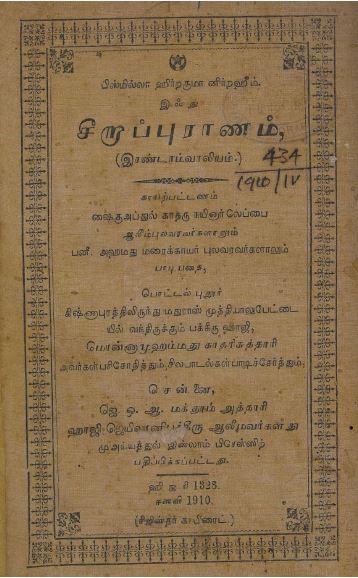 பிஸ்மில்லா ஹிர்றகுமா னிர்றஹீம்.
இஃது
சீறாப்புராணம்,
(இரண்டாம்வாலியம்.)
434
1910/IV
காயற்பட்டணம்
ஷைகுஅப்துல் காதரு நயினார் லேப்பை
ஆலிம்புலவரவர்களாலும்
பனீ. அஹமது மரைக்காயர் புலவரவர்களாலும்
பொட்டல் புதூர்
கிஷ்ணாபுரத்திலிருந்து மதுராஸ் முத்தியாலுபேட்டை
யில் வந்திருக்கும் பக்கிரு ஹாஜி,
மொன்னாமுஹம்மது காதரீசுத்தாரி
அவர்கள்பரிசோதித்தும், சிலபாடல்கள்பாடிச்சேர்த்தும்,
சென்னை,
ஜெ. ஒ. ஆ. மக்தூம் அத்தாரி
ஹாஜி-ஜெயிலானிபக்கீரு ஆலீமவர்களது
முஅய்யத்துல் இஸ்லாம் பிரெஸ்ஸிற்
பதிப்பிக்கப்பட்டது.
ஹிஜ்ரி 1328.
சனவரி 1910.
(சிஜிஸ்தர் காபிரைட்.)